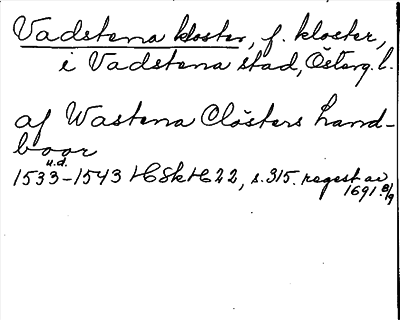 Vadstena kloster, f. kloster,
i Vadstena stad, Österg. l.
af Wastena Clösters hand-
boor
u.d.
1533-1543 HSkH 22, s. 315. regest av
1691 8/9